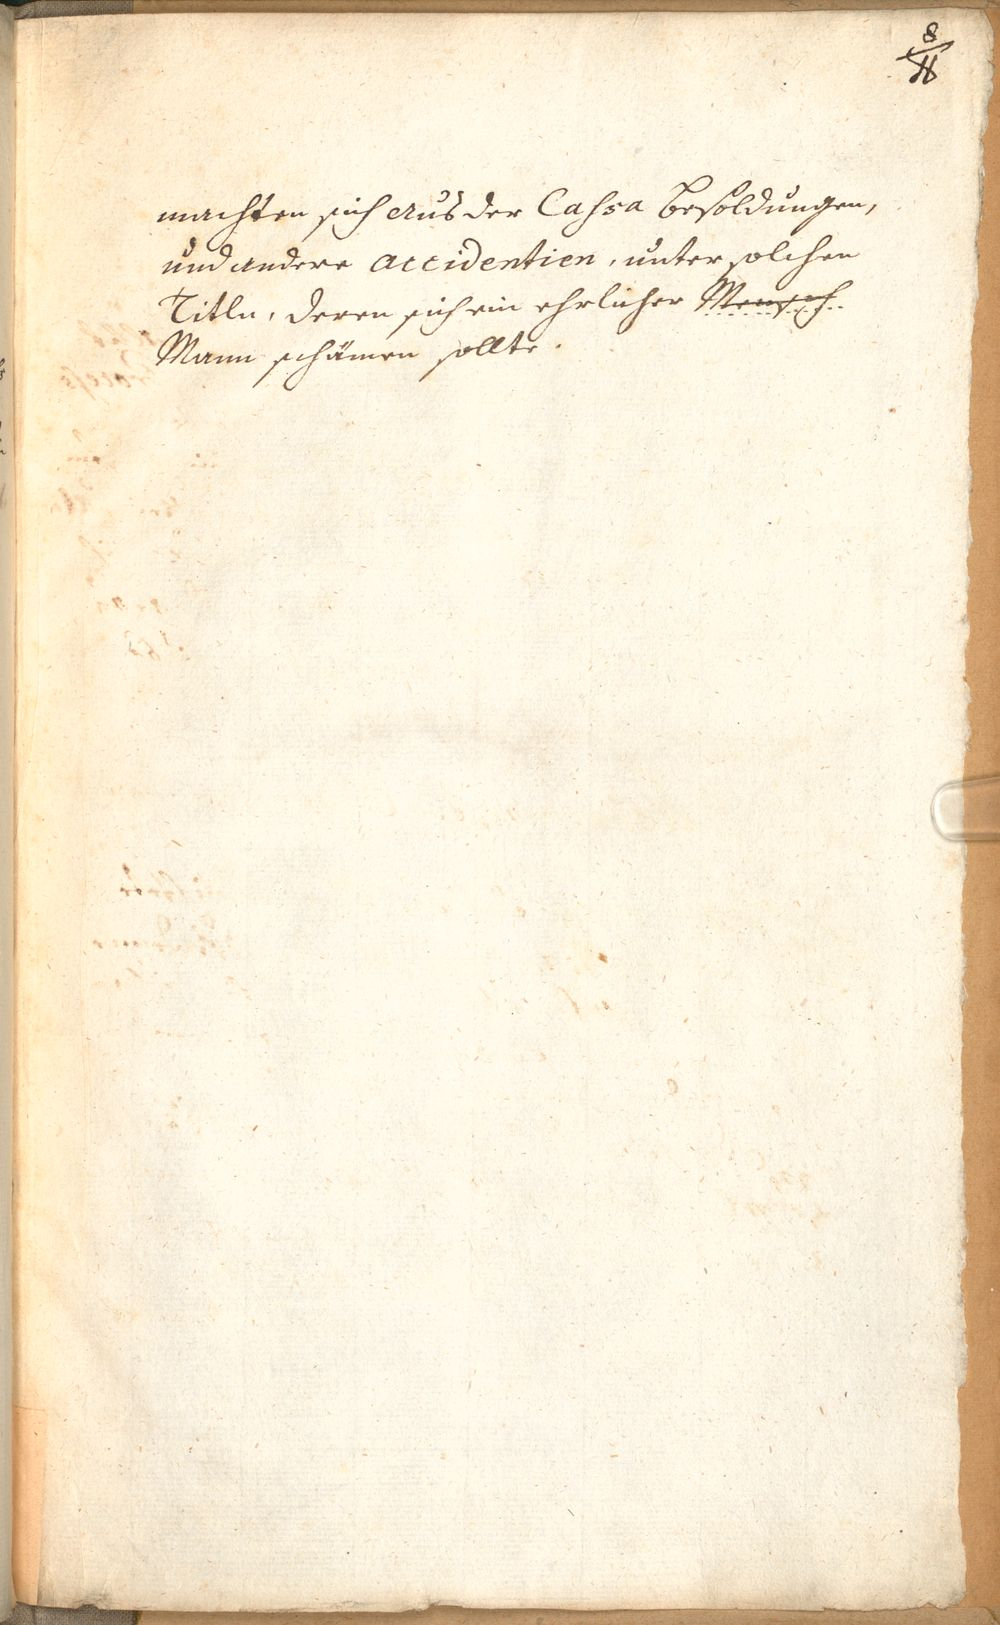 8
machten sich aus der Cassa Besoldungen,
und andere accidentien, unter solchen
Titln, deren sich ein ehrlicher Mensch
Mann schämen sollte.